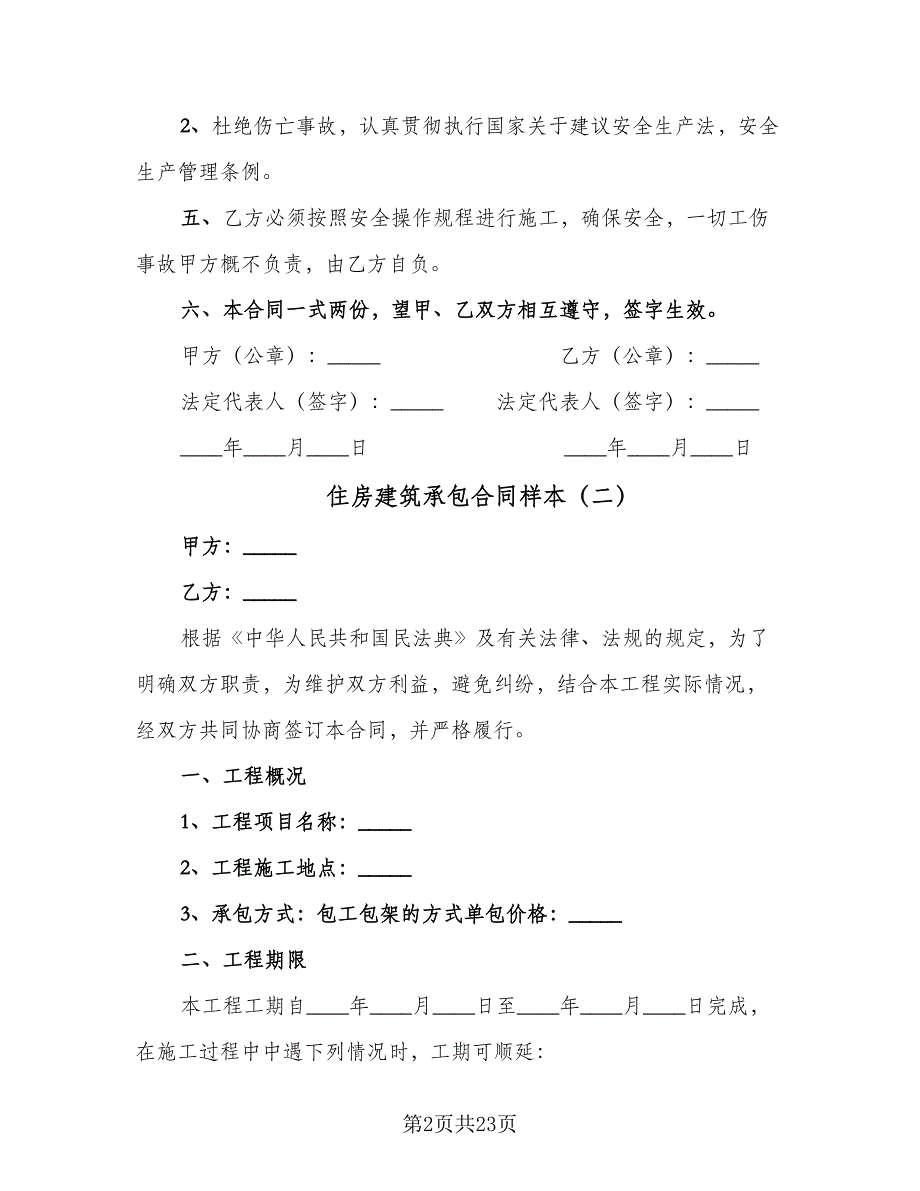 2、杜绝伤亡事故，认真贯彻执行国家关于建议安全生产法，安全
生产管理条例。
五、乙方必须按照安全操作规程进行施工，确保安全，一切工伤
事故甲方概不负责，由乙方自负。
六、本合同一式两份，望甲、乙双方相互遵守，签字生效。
甲方（公章）：_____ 乙方（公章）：_____
法定代表人（签字）：_____ 法定代表人（签字）：_____
____年____月____日 ____年____月____日
住房建筑承包合同样本（二）
甲方：_____
乙方：_____
根据《中华人民共和国民法典》及有关法律、法规的规定，为了
明确双方职责，为维护双方利益，避免纠纷，结合本工程实际情况，
经双方共同协商签订本合同，并严格履行。
一、工程概况
1、工程项目名称：_____
2、工程施工地点：_____
3、承包方式：包工包架的方式单包价格：_____
二、工程期限
本工程工期自____年____月____日至____年____月____日完成，
在施工过程中中遇下列情况时，工期可顺延：
第2页共23页